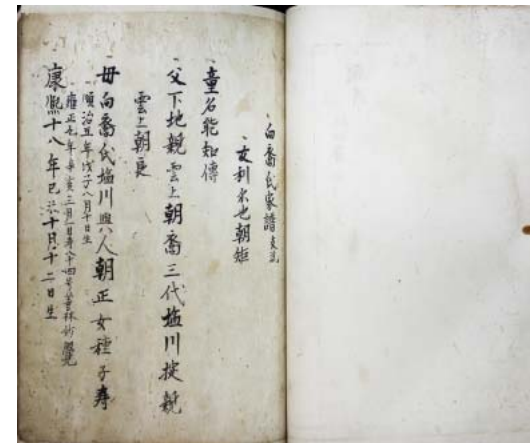 白裔氏家譜支流
友利家也朝矩
童名能知傳
父下地親雲上朝裔三代塩川掟親
雲上朝良
母白裔氏塩川與人朝正女種子寿
順治五年戊子八月十日生
雍正九年辛亥三月一日寿八十四号
康熙十八年己未十月十二日生